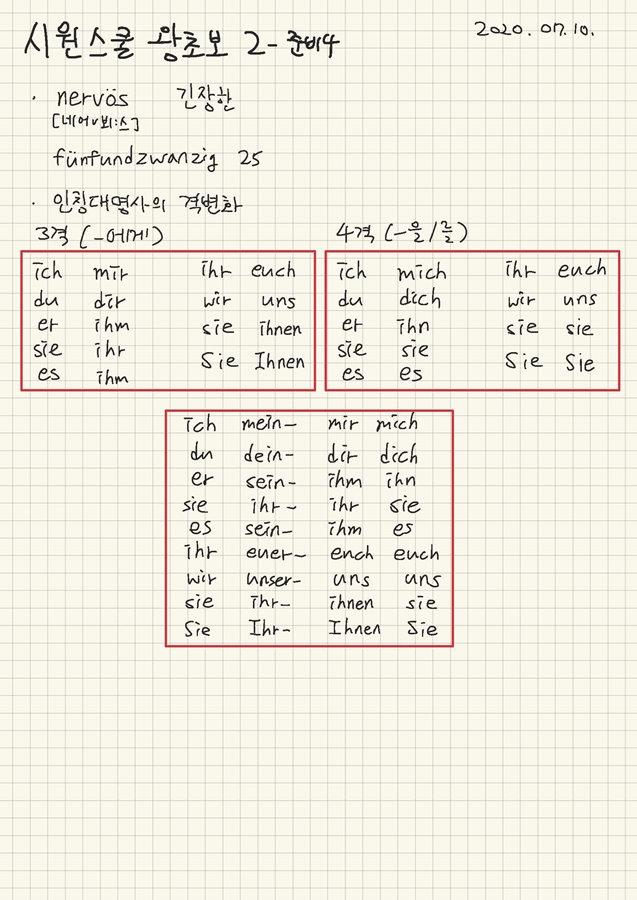 시원스쿨 왕초보 2 - 준비4
2020. 07. 10.
· nervös 긴장한
[네어ㅂ뵈:스]
fünfundzwanzig 25
· 인칭대명사의 격변화
3격 (-에게)
ich mir ihr euch
du dir wir uns
er ihm sie ihnen
sie ihr Sie Ihnen
es ihm
4격 (-을/를)
ich mich ihr euch
du dich wir uns
er ihn sie sie
sie sie Sie Sie
es es
ich mein- mir mich
du dein- dir dich
er sein- ihm ihn
sie ihr- ihr sie
es sein- ihm es
ihr euer- euch euch
wir unser- uns uns
sie ihr- ihnen sie
Sie Ihr- Ihnen Sie